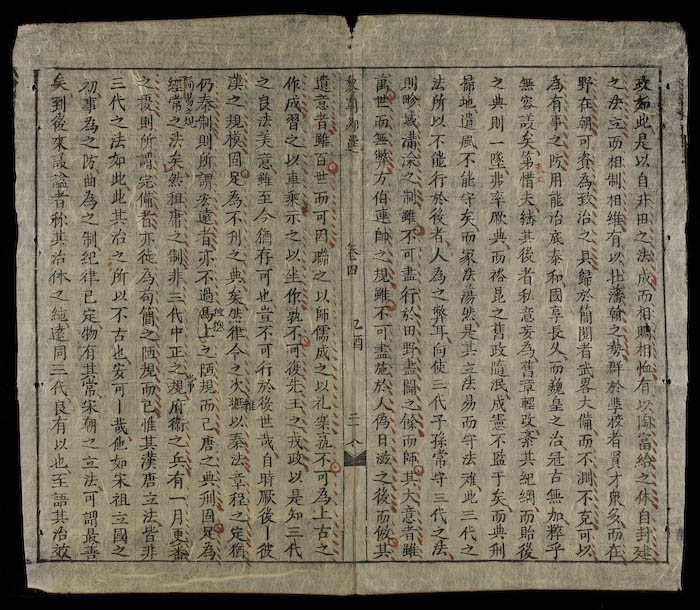 政如此是以自井田之法成而相賙相恤有以富給之休自封建
之法立而相制相維有以壮藩翰之勢群於學校者員才衆多而在
野在朝可者為致治之具歸於簡閱者武畧大備而不測不克可以
為有事之防用能治底泰和國享長久而巍皇之治冠古無加釋乎
無容議矣第惜夫其後者私意妄為舊章輕改紊其紀綱而貽後
之典則一墜弗率厥典而裕昆之舊政隨泯成憲不監于矣而典刑
掃地遺風不能守矣而家法蕩然是其立法易而守法难此三代之
法所以不能行於後者人為之弊耳向使三代子孫常守三代之法
則畛域溝深之制雖不可盡行於田野畫圖之條而師其大意者雖
萬世而無弊方伯連帥之規雖不可盡施於人偽日滋之後而倣其
卷四 乙酉
遺意者雖百世而可因聯之以師儒成之以礼樂孰不可為上古之
作成習之以車乘示之以坐作孰不可復先王之戎政以是知三代
之良法美意雖至今猶存可也豈不可行於後世哉自時厥後一彼
漢之規模固足為不刋之典矣然律令之次雜以秦法章程之定猶
仍秦制則所謂宏遠者亦不過馬上之陋規而已唐之典刑固足為
經常之法矣然祖庸之制非三代中正之規府衛之兵有一月更番
之役則所謂完備者亦徒為苟簡之陋規而已惟其漢唐立法皆非
三代之法如此此其治之所以不古也安可一哉他如宋祖立國之
初事為之防曲為之制紀律已定物有其常宋朝之立法可謂最善
矣到後來議謚者称其治休之純遠同三代良有以也至語其治效